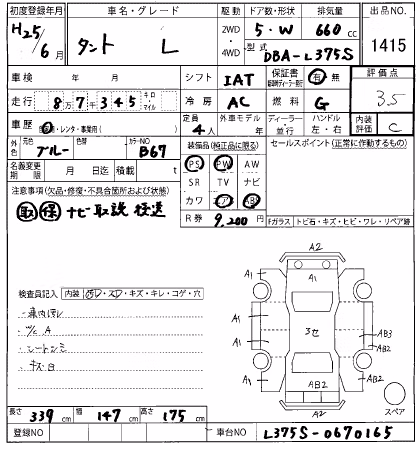 初度登録年月 車名・グレード 駆動 ドア数・形状 排気量 出品NO.
H25/6月 タント L 2WD・4WD 5・W 660cc 1415
型式 DBA-L375S
車検 年 月 シフト IAT 保証書 有 無 評価点
走行 8万7千345キロ・マイル 冷房 AC 燃料 G 3.5
車歴 自家・レンタ・事業用( ) 定員 4人 外車モデル 年 ディーラー・並行 ハンドル 左・右 内装評価 C
外色 元色 ブルー 色替 カラーNO B67
装備品(純正品に限る) セールスポイント(正常に作動するもの)
名義変更期限 月 日迄 積載 t
PS PW AW
SR TV ナビ
カワ エア AB
注意事項(欠品・修復・不具合箇所および状態)
取 保 ナビ取説 後送
R券 9,200円
Fガラス トビ石・キズ・ヒビ・ワレ・リペア跡
検査員記入 内装 コゲ・穴
車内汚レ
W/C A
シート シミ
キズ・凹
A2
A1
A1 A1
A1 3セ AB3
A1 A1 AB2
AB2
A2
スペア
長さ 339cm 幅 147cm 高さ 175cm
登録NO 車台NO L375S-0670165